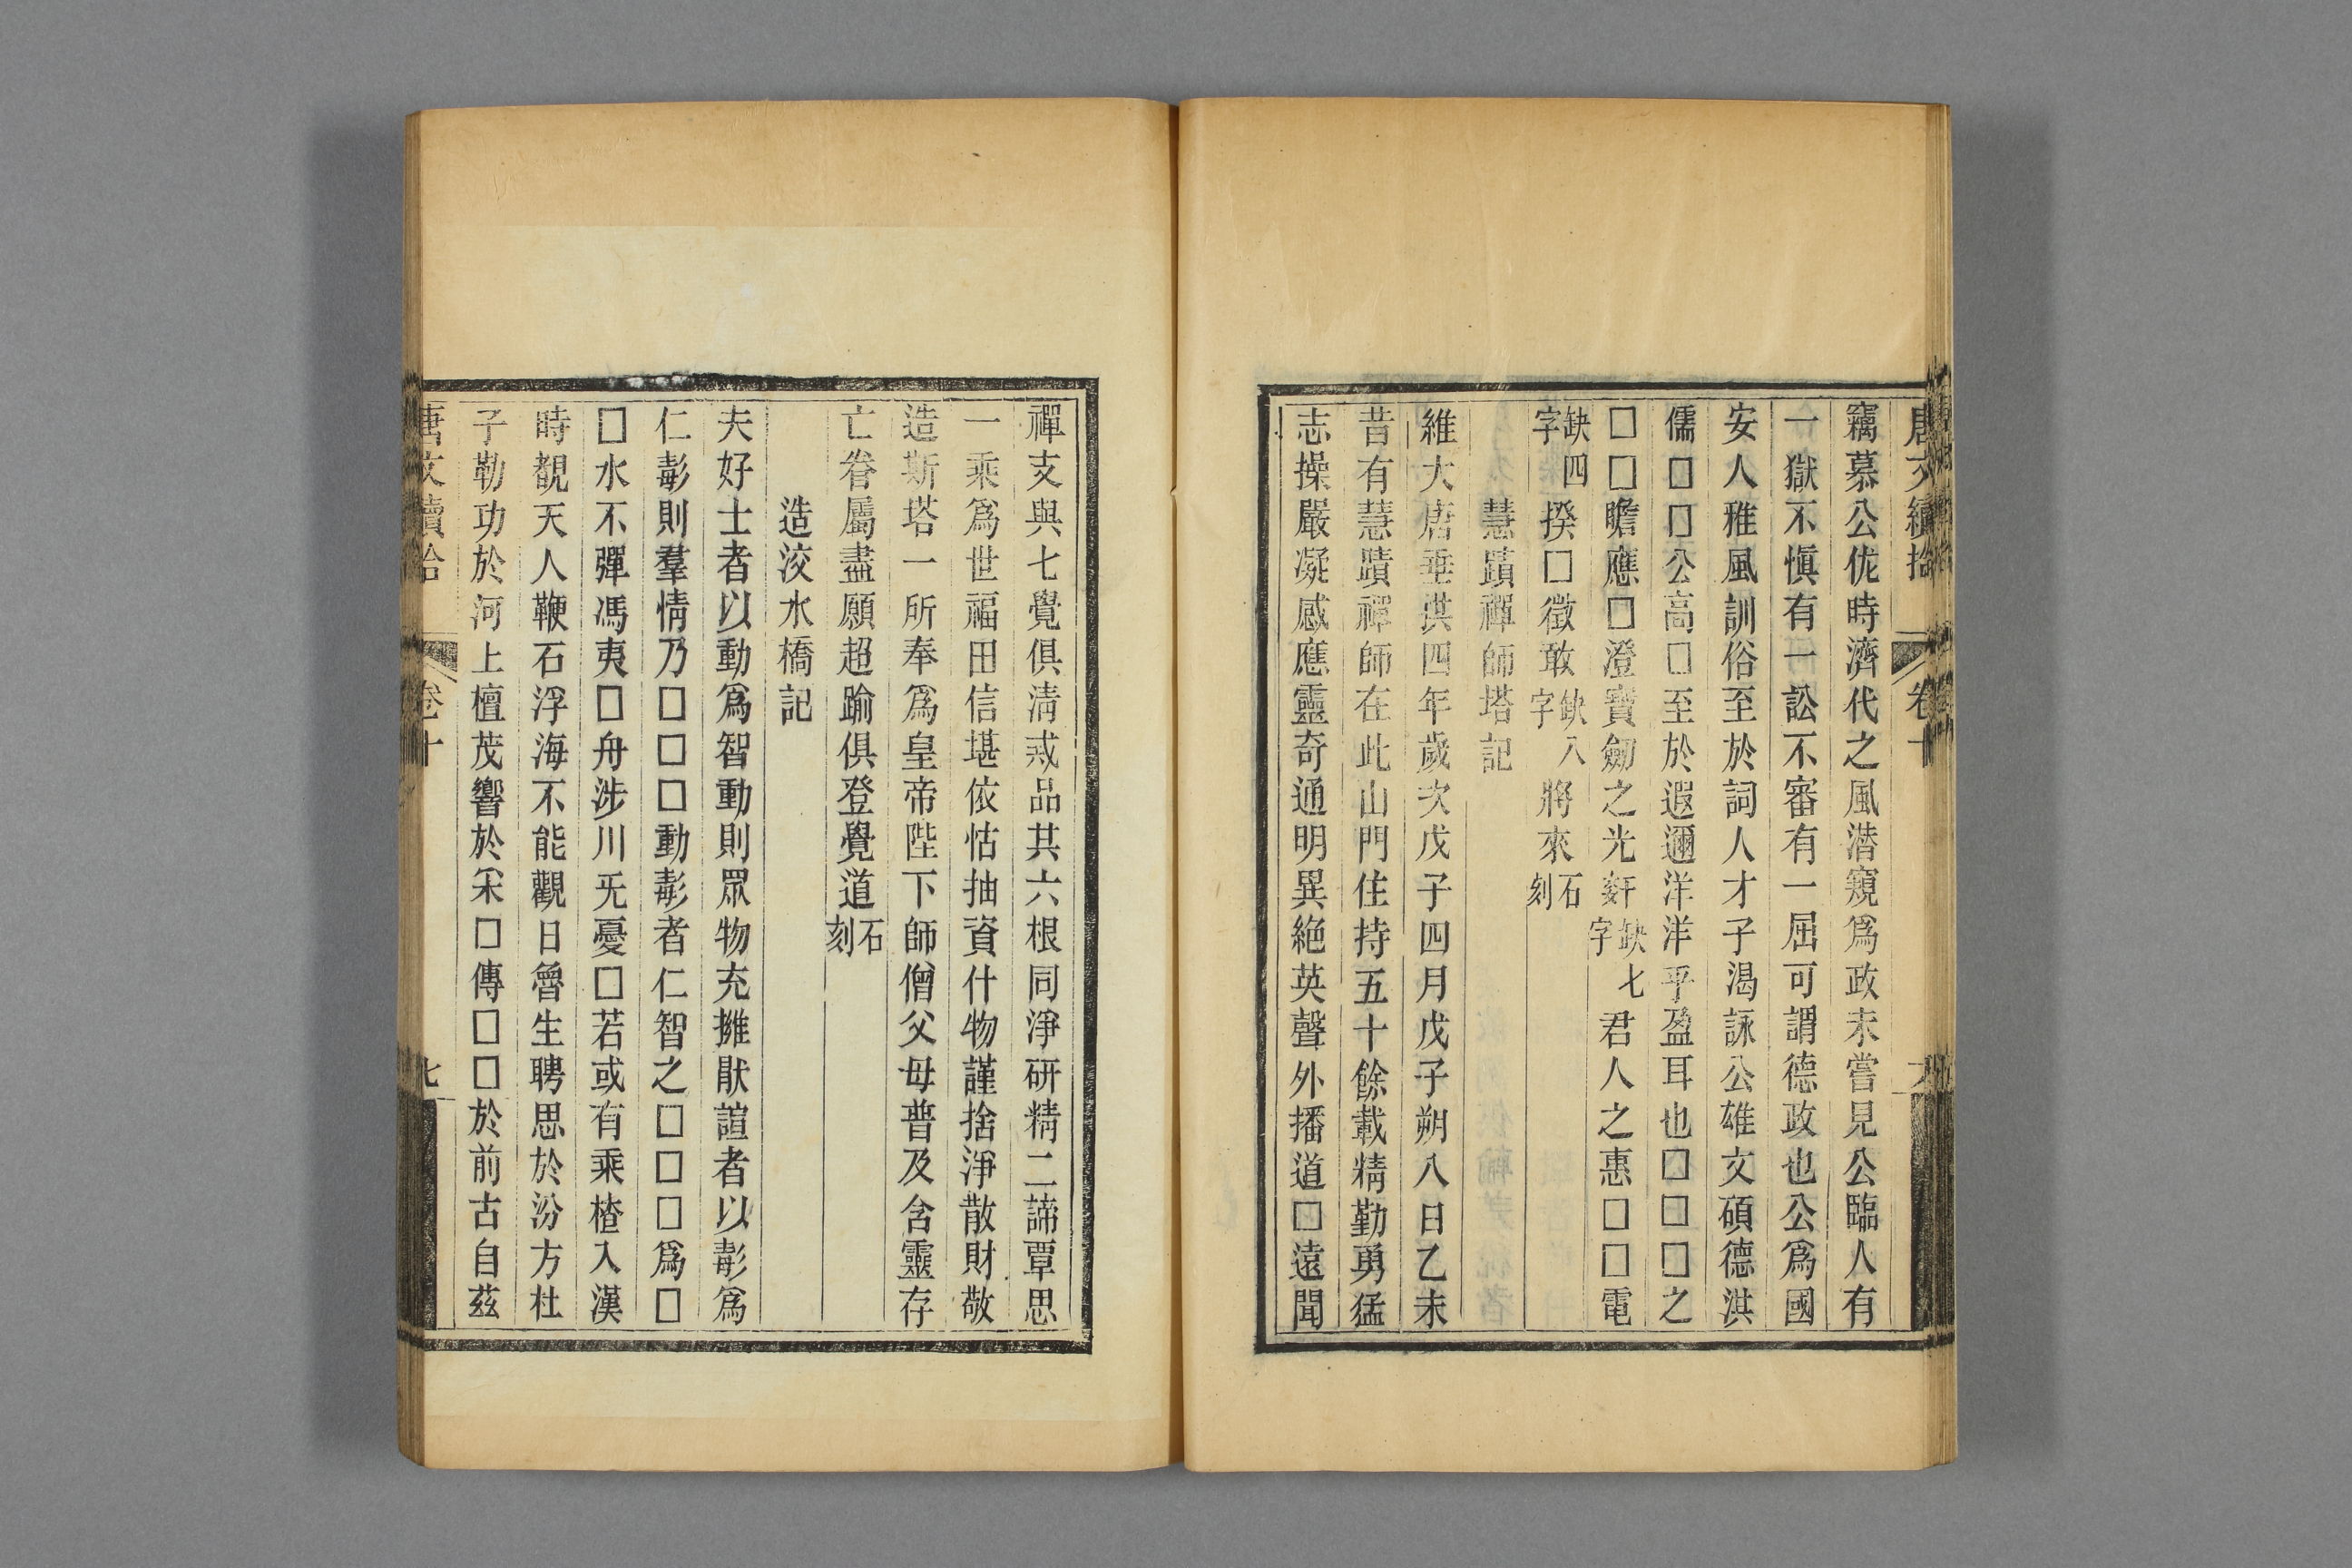 唐文續拾 卷十
竊慕公優時濟代之風潛窺爲政未嘗見公臨人有
一獄不愼有一訟不審有一屈可謂德政也公爲國
安人雅風訓俗至於詞人才子渴詠公雄文碩德淇
儒□□公高□至於遐邇洋洋乎盈耳也□□□之
□□瞻應□澄寶劒之光姸缺七字君人之惠□□電
缺四字揆□徵敢缺八字將來石刻
慧蹟禪師塔記
維大唐垂拱四年歲次戊子四月戊子朔八日乙未
昔有慧蹟禪師在此山門住持五十餘載精勤勇猛
志操嚴凝感應靈奇通明異絕英聲外播道□遠聞
禪支與七覺俱淸戒品其六根同淨硏精二諦覃思
一乘爲世福田信堪依怙抽資什物謹捨淨散財敬
造斯塔一所奉爲皇帝陛下師僧父母普及含靈存
亡眷屬盡願超踰俱登覺道石刻
造洨水橋記
夫好士者以動爲智動則眾物充擁猒諠者以彭爲
仁彭則羣情乃□□□動彭者仁智之□□□爲□
□水不彈馮夷□舟涉川旡憂□若或有乘楂入漢
時覩天人鞭石浮海不能觀日魯生聘思於汾方杜
子勒功於河上檀茂響於釆□傳□□於前古自茲
唐文續拾 卷十 七